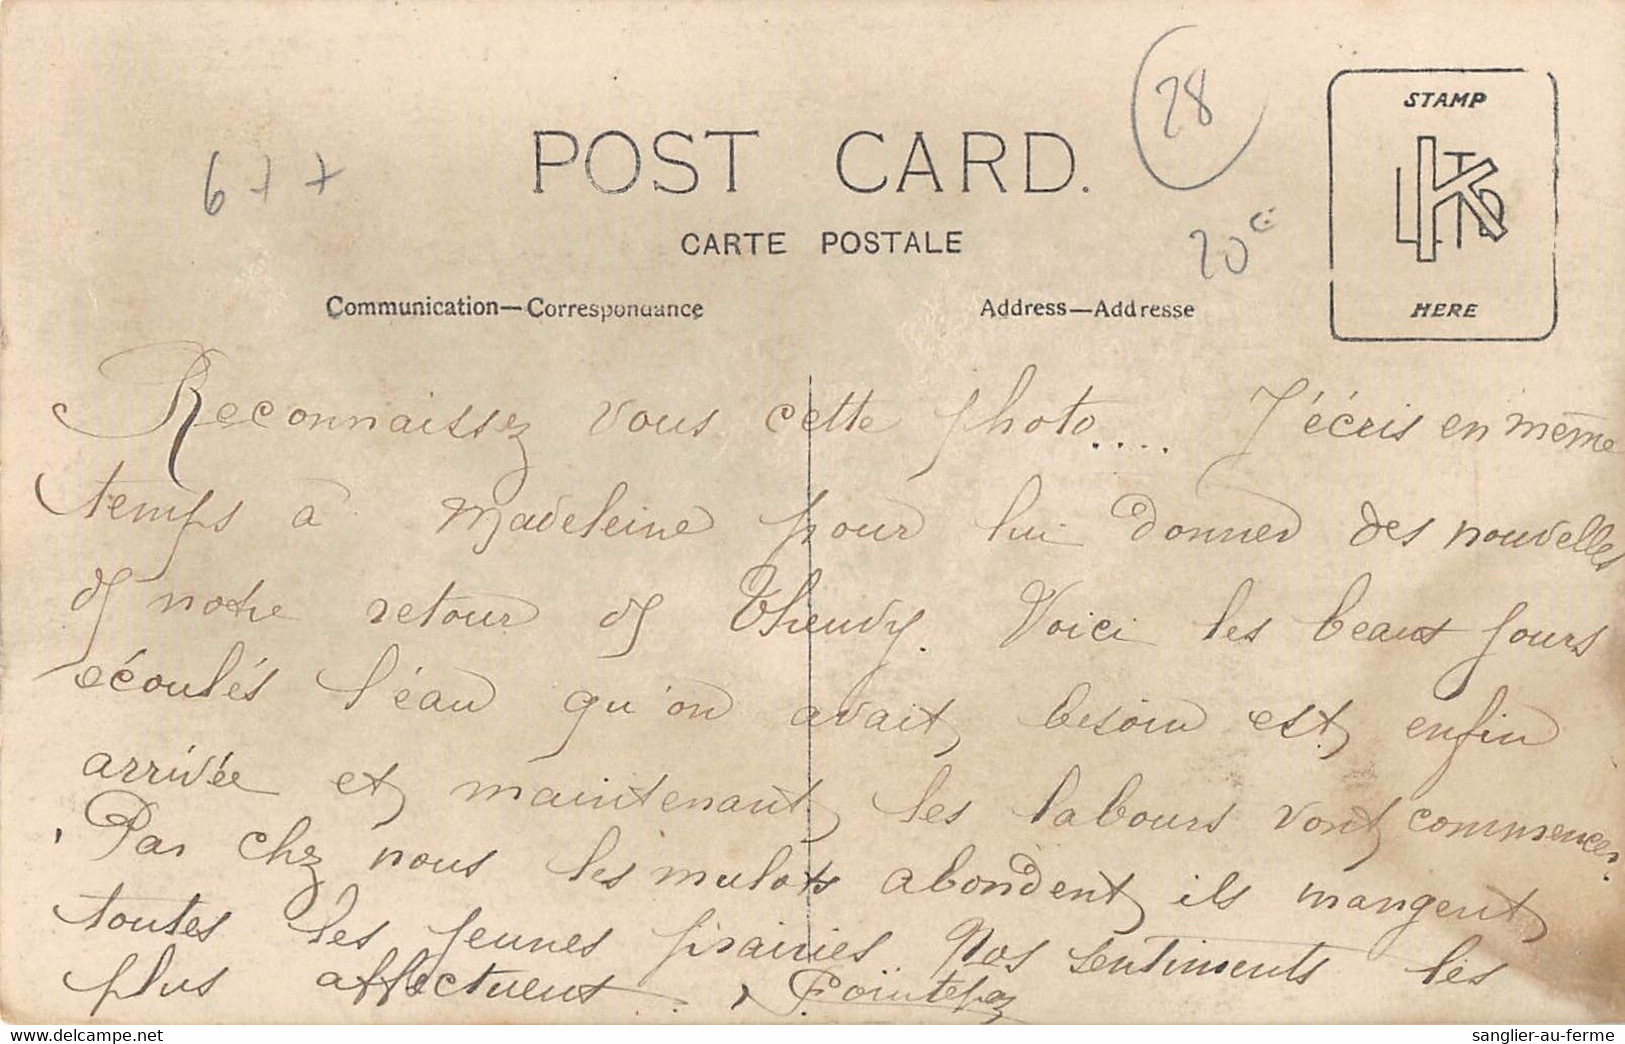 28
677
POST CARD.
20€
CARTE POSTALE
STAMP
HERE
Communication—Correspondance
Address—Addresse
Reconnaissez vous cette photo.... J'écris en même
temps à Madeleine pour lui donner des nouvelles
de notre retour de Theuvy. Voici les beaux jours
écoulés l'éau qu'on avait besoin est enfin
arrivée et maintenant les labours vont commencer.
Par chez nous les mulots abondent ils mangent
toutes les jeunes prairies Nos sentiments les
plus affectueux.
sanglier-au-ferme